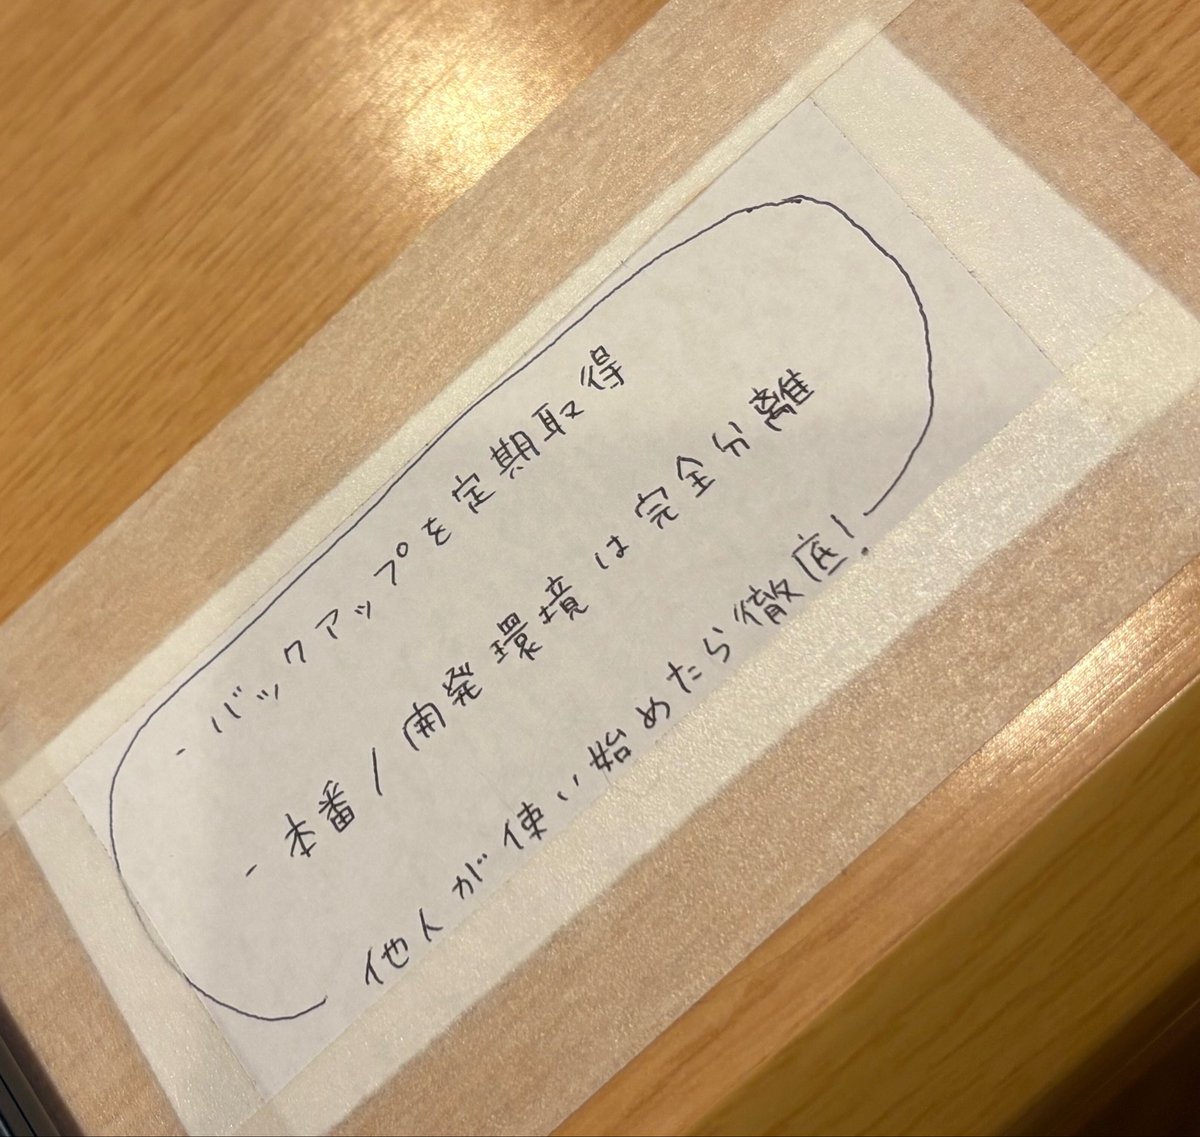 - バックアップを定期取得
- 本番/開発環境は完全分離
他人が使い始めたら徹底!